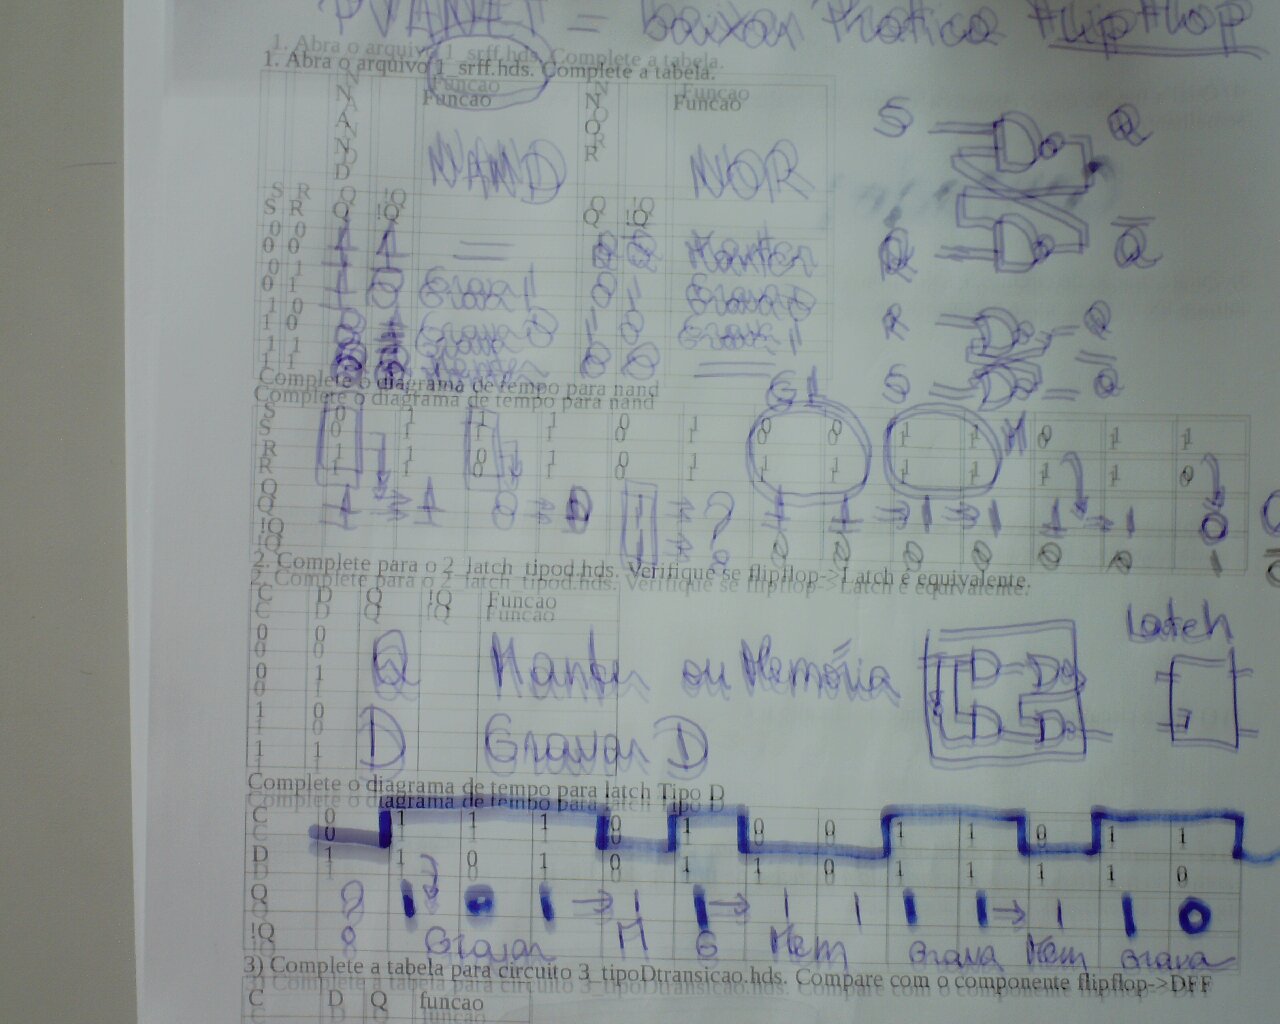 PVANET = baixar Pratica FlipFlop
1. Abra o arquivo 1_srff.hds. Complete a tabela.
NAND Funcao NOR Funcao
NAND NOR
S Q
S R Q !Q Q !Q
0 0 1 1 = 0 0 Manter
R Q
0 1 1 0 Grava 1 0 1 Grava 0
1 0 0 1 Grava 0 1 0 Grava 1
R Q
1 1 Manter 0 0 =
S Q
Complete o diagrama de tempo para nand
G1
S 0 1 1 1 0 1 0 0 1 1 M 0 1 1
R 1 1 0 1 0 1 1 1 1 1 1 1 0
Q 1 ⇒ 1 0 ⇒ 0 1 ⇒ ? 1 1 ⇒ 1 ⇒ 1 1 → 1 0
!Q 1 ⇒ ? 0 0 0 0 0 0 1
2. Complete para o 2_latch_tipod.hds. Verifique se flipflop->Latch e equivalente.
C D Q !Q Funcao
0 0
0 1
Q Manter ou Memória
Latch
1 0
1 1
D Gravar D
Complete o diagrama de tempo para latch Tipo D
C 0 1 1 1 0 1 0 0 1 1 0 1 1
D 1 1 0 1 0 1 1 0 1 1 1 1 0
Q ? 1 0 1 → 1 1 → 1 1 1 1 → 1 1 0
!Q Gravar M G Mem Grava Mem Grava
3) Complete a tabela para circuito 3_tipoDtransicao.hds. Compare com o componente flipflop->DFF
C D Q funcao